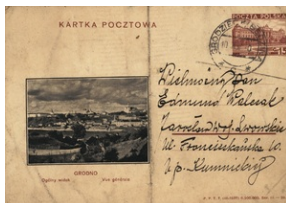 KARTKA POCZTOWA
POCZTA POLSKA
15
GRODNO
Ogólny widok
Vue générale
Wielmożny Pan
Edmund Walczak
Jarosław Woj. Lwowskie
ul. Franciszkańska